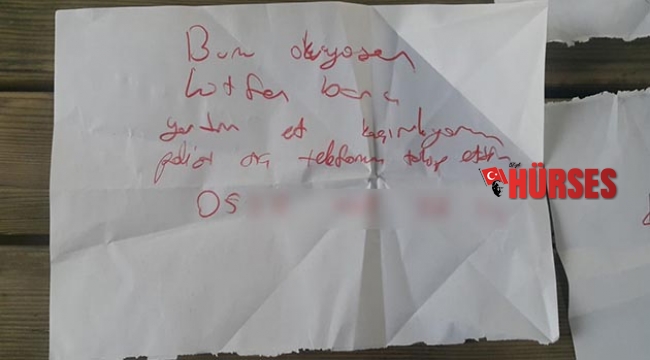 Bunu okuyosan
Lütfen bana
yardım et kaçırılıyorum
polisi ara telefonumu takip etsin
05
HÜRSES